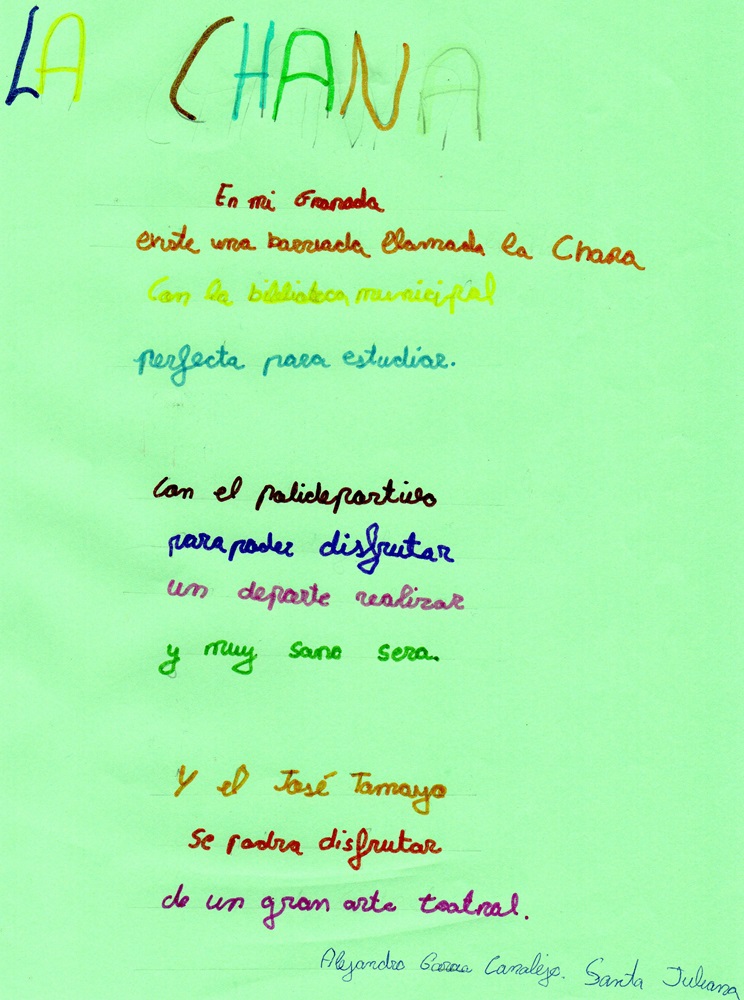 LA CHANA
En mi Granada
existe una barriada llamada la Chana
Con la biblioteca municipal
perfecta para estudiar.
Con el polideportivo
para poder disfrutar
un deporte realizar
y muy sano sera.
Y el José Tamayo
Se podra disfrutar
de un gran arte teatral.
Alejandro Garcia Canalejo. Santa Juliana